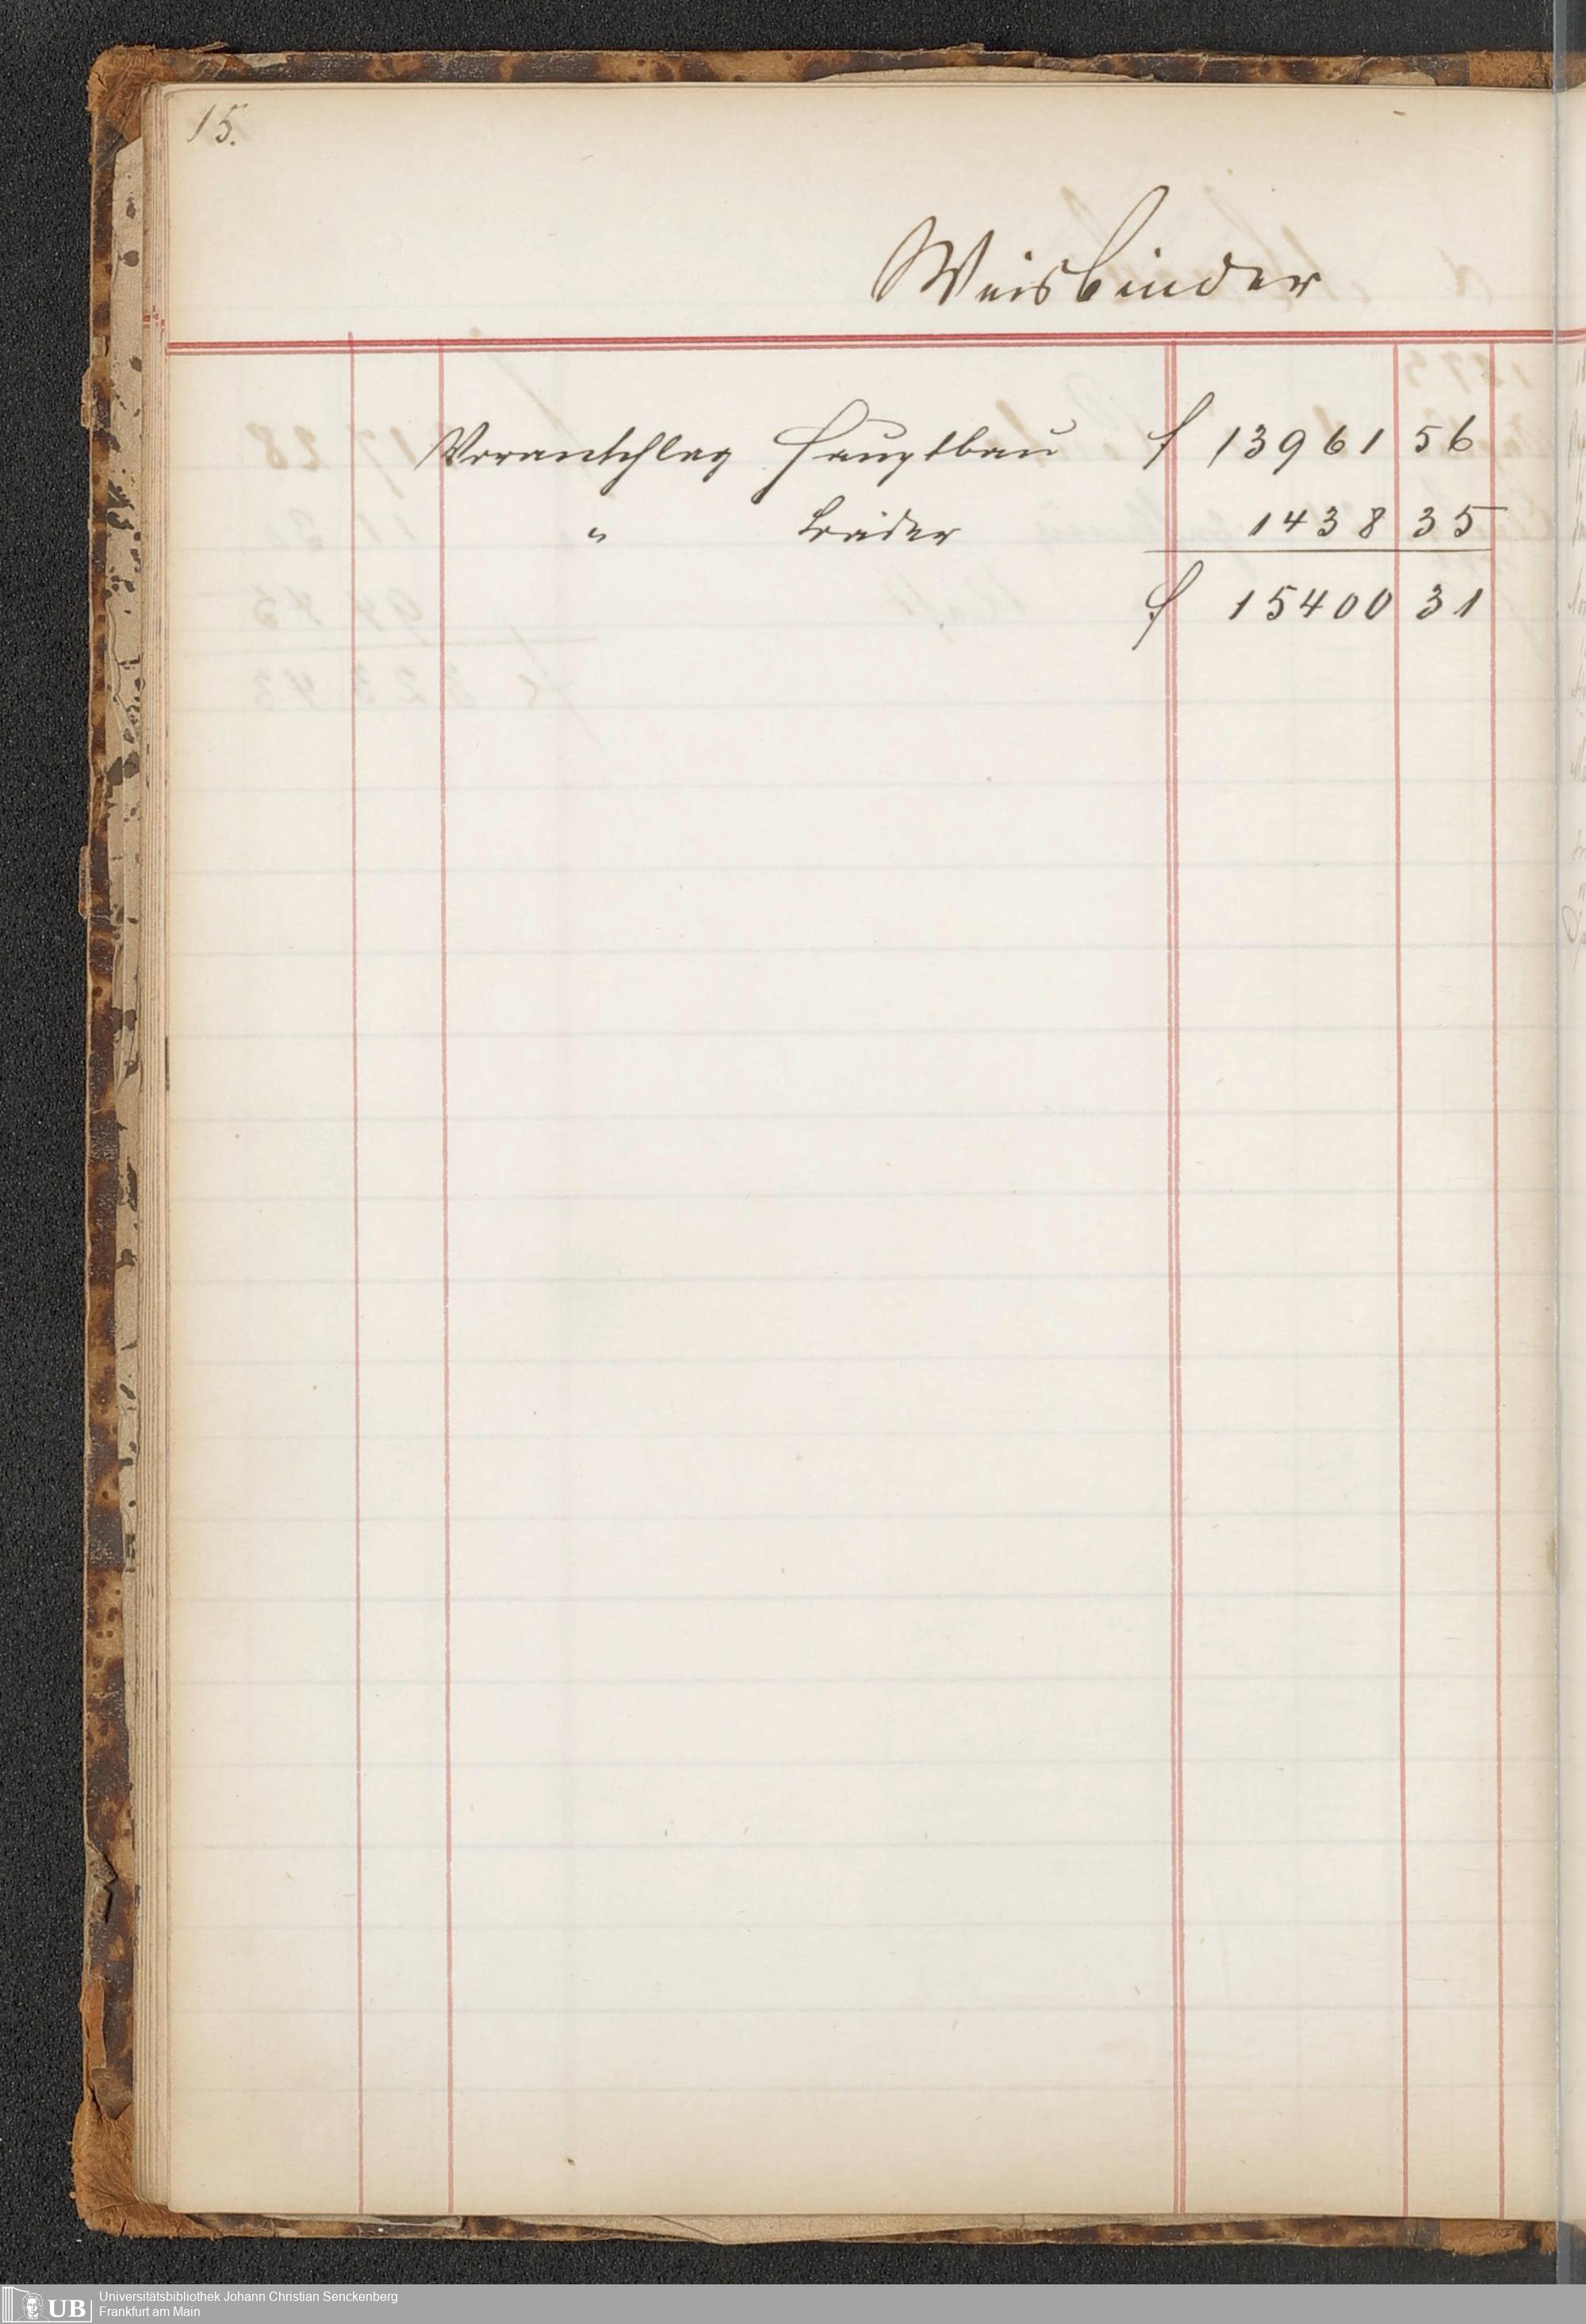 15.
Weisbinder
Voranschlag Hauptbau f 13961 56
" Bäder 1438 35
f 15400 31
UB Universitätsbibliothek Johann Christian Senckenberg
Frankfurt am Main